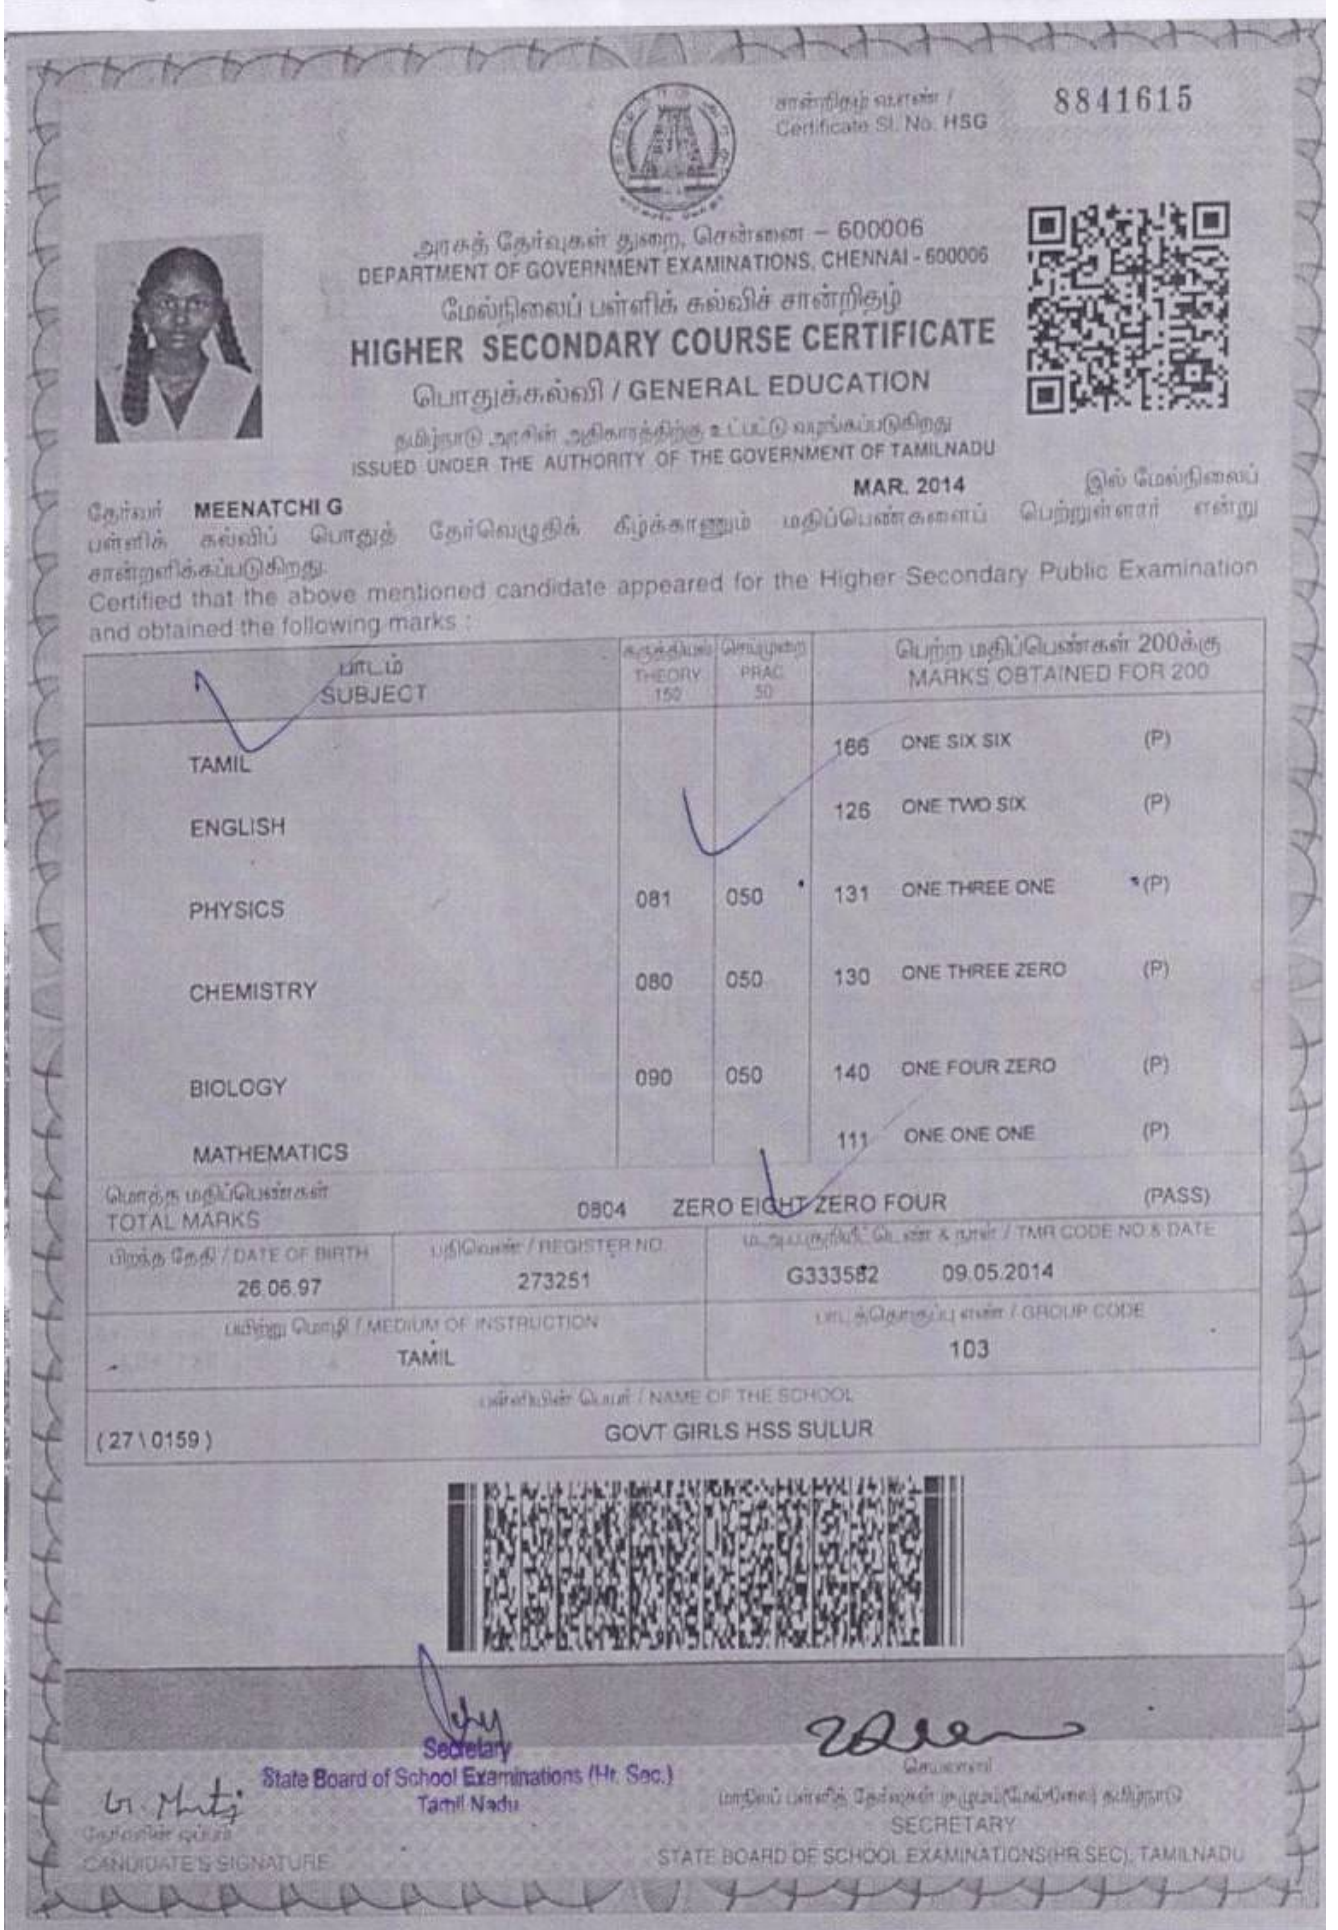 சான்றிதழ் வ.எண் /
Certificate Sl. No. HSG
8841615
அரசுத் தேர்வுகள் துறை, சென்னை – 600006
DEPARTMENT OF GOVERNMENT EXAMINATIONS, CHENNAI - 600006
மேல்நிலைப் பள்ளிக் கல்விச் சான்றிதழ்
HIGHER SECONDARY COURSE CERTIFICATE
பொதுக்கல்வி / GENERAL EDUCATION
தமிழ்நாடு அரசின் அதிகாரத்திற்கு உட்பட்டு வழங்கப்படுகிறது
ISSUED UNDER THE AUTHORITY OF THE GOVERNMENT OF TAMILNADU
தேர்வர் MEENATCHI G MAR. 2014 இல் மேல்நிலைப்
பள்ளிக் கல்விப் பொதுத் தேர்வெழுதிக் கீழ்க்காணும் மதிப்பெண்களைப் பெற்றுள்ளார் என்று
சான்றளிக்கப்படுகிறது.
Certified that the above mentioned candidate appeared for the Higher Secondary Public Examination
and obtained the following marks :
பாடம் கருத்தியல் செய்முறை பெற்ற மதிப்பெண்கள் 200க்கு
SUBJECT THEORY 150 PRAC 50 MARKS OBTAINED FOR 200
TAMIL 166 ONE SIX SIX (P)
ENGLISH 126 ONE TWO SIX (P)
PHYSICS 081 050 131 ONE THREE ONE (P)
CHEMISTRY 080 050 130 ONE THREE ZERO (P)
BIOLOGY 090 050 140 ONE FOUR ZERO (P)
MATHEMATICS 111 ONE ONE ONE (P)
மொத்த மதிப்பெண்கள்
TOTAL MARKS 0804 ZERO EIGHT ZERO FOUR (PASS)
பிறந்த தேதி / DATE OF BIRTH பதிவெண் / REGISTER NO. / TMR CODE NO & DATE
26.06.97 273251 G333582 09.05.2014
பயிற்று மொழி / MEDIUM OF INSTRUCTION பாடத்தொகுப்பு எண் / GROUP CODE
TAMIL 103
பள்ளியின் பெயர் / NAME OF THE SCHOOL
(27\0159) GOVT GIRLS HSS SULUR
Secretary
State Board of School Examinations (Hr. Sec.)
Tamil Nadu
தேர்வரின் ஒப்பம்
CANDIDATE'S SIGNATURE
செயலாளர்
மாநிலப் பள்ளித் தேர்வுகள் குழுமம்(மேல்நிலை) தமிழ்நாடு
SECRETARY
STATE BOARD OF SCHOOL EXAMINATIONS(HR.SEC), TAMILNADU